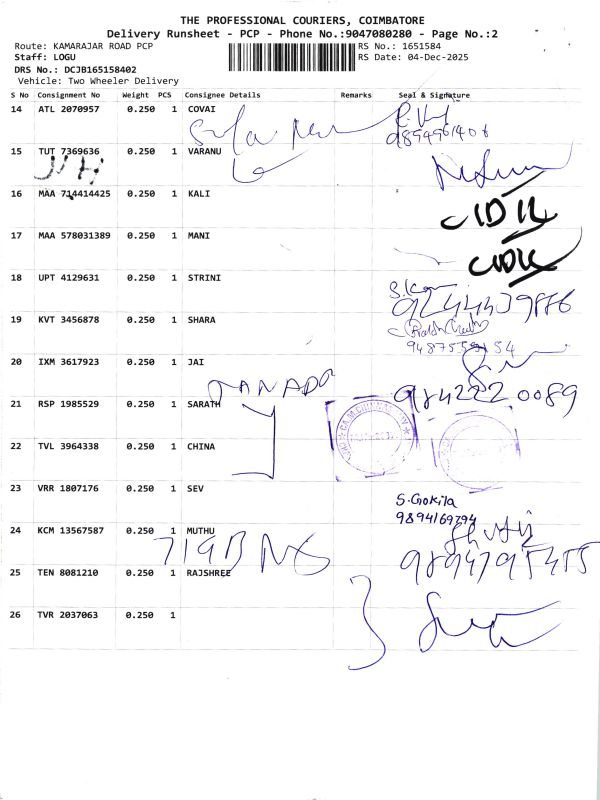 THE PROFESSIONAL COURIERS, COIMBATORE
Delivery Runsheet - PCP - Phone No.:9047080280 - Page No.:2
Route: KAMARAJAR ROAD PCP
RS No.: 1651584
Staff: LOGU
RS Date: 04-Dec-2025
DRS No.: DCJB165158402
Vehicle: Two Wheeler Delivery
S No Consignment No Weight PCS Consignee Details Remarks Seal & Signature
14 ATL 2070957 0.250 1 COVAI
9894961408
15 TUT 7369636 0.250 1 VARANU
16 MAA 714414425 0.250 1 KALI
17 MAA 578031389 0.250 1 MANI
18 UPT 4129631 0.250 1 STRINI
19 KVT 3456878 0.250 1 SHARA
20 IXM 3617923 0.250 1 JAI
984222 0089
21 RSP 1985529 0.250 1 SARATH
22 TVL 3964338 0.250 1 CHINA
23 VRR 1807176 0.250 1 SEV
S. Gokila
9894169794
24 KCM 13567587 0.250 1 MUTHU
25 TEN 8081210 0.250 1 RAJSHREE
26 TVR 2037063 0.250 1